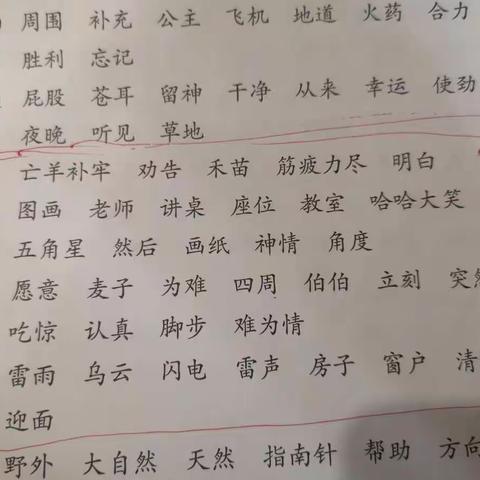 周围 补充 公主 飞机 地道 火药 合力
胜利 忘记
屁股 苍耳 留神 干净 从来 幸运 使劲
夜晚 听见 草地
亡羊补牢 劝告 禾苗 筋疲力尽 明白
图画 老师 讲桌 座位 教室 哈哈大笑
五角星 然后 画纸 神情 角度
愿意 麦子 为难 四周 伯伯 立刻 突然
吃惊 认真 脚步 难为情
雷雨 乌云 闪电 雷声 房子 窗户 清
迎面
野外 大自然 天然 指南针 帮助 方向